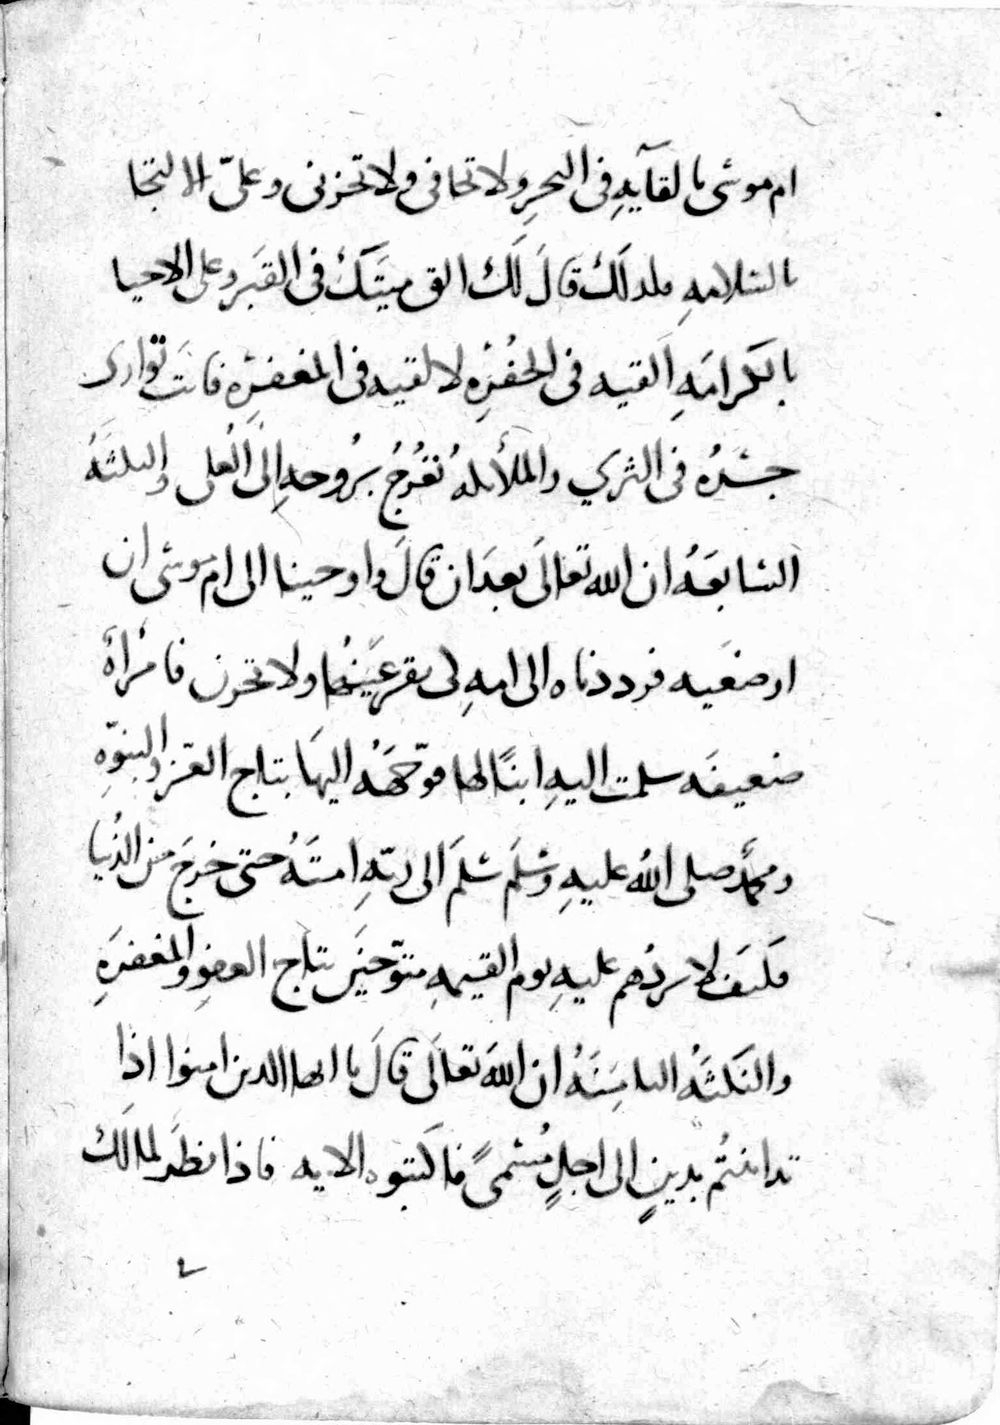 ام موسى بالقآيهِ فى البحرِ ولا تخافى ولا تحزنى وعلىّ الالتجا
بالسلامهِ فلذلكَ قالَ لَكَ القِ ميتَكَ فى القبرِ وعلى الاحيا
بالكرامهِ القيه فى الحُفْرِه لالقيه فى المغفرِه فانتَ توارى
جسَدُه فى الثري والملأيكهُ تعْرُجُ برُوحهِ إلى العُلى والنكتَهُ
السابعَهُ ان الله تعالَى بعدَ ان قالَ واوحينا الى ام موسى ان
ارضعَيه فرددناه الى امهِ كى تقر عَينُها ولا تحزن فامرأة
ضعيفَه سلمت اليهِ ابنًا لها فوجّهَهُ اليهَا بتاج العزِ والنبوّهِ
ومحمَّد صلى اللهُ عليهِ وسلَم سَلمَ الى ربّهِ امتَهُ حتى خرجَ من الدُنيا
فكيفَ لا يردُهم عليهِ يوم القيمهِ متوّجيَن بتاج العفوِ والمغفرَهِ
والنكتَهُ الثامِنَهُ ان اللهَ تعالَى قالَ يا ايها الذين امنوا اذا
تداينتُم بدينٍ الى اجلٍ مُسْمىً فاكتبوه الايه فاذا نظَر لمالكَ